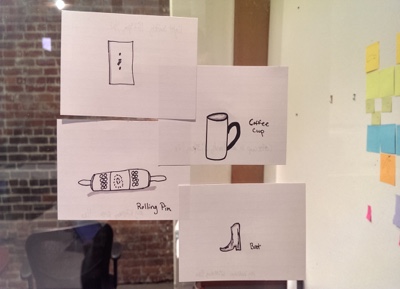 Coffee
Cup
Rolling Pin
Boot